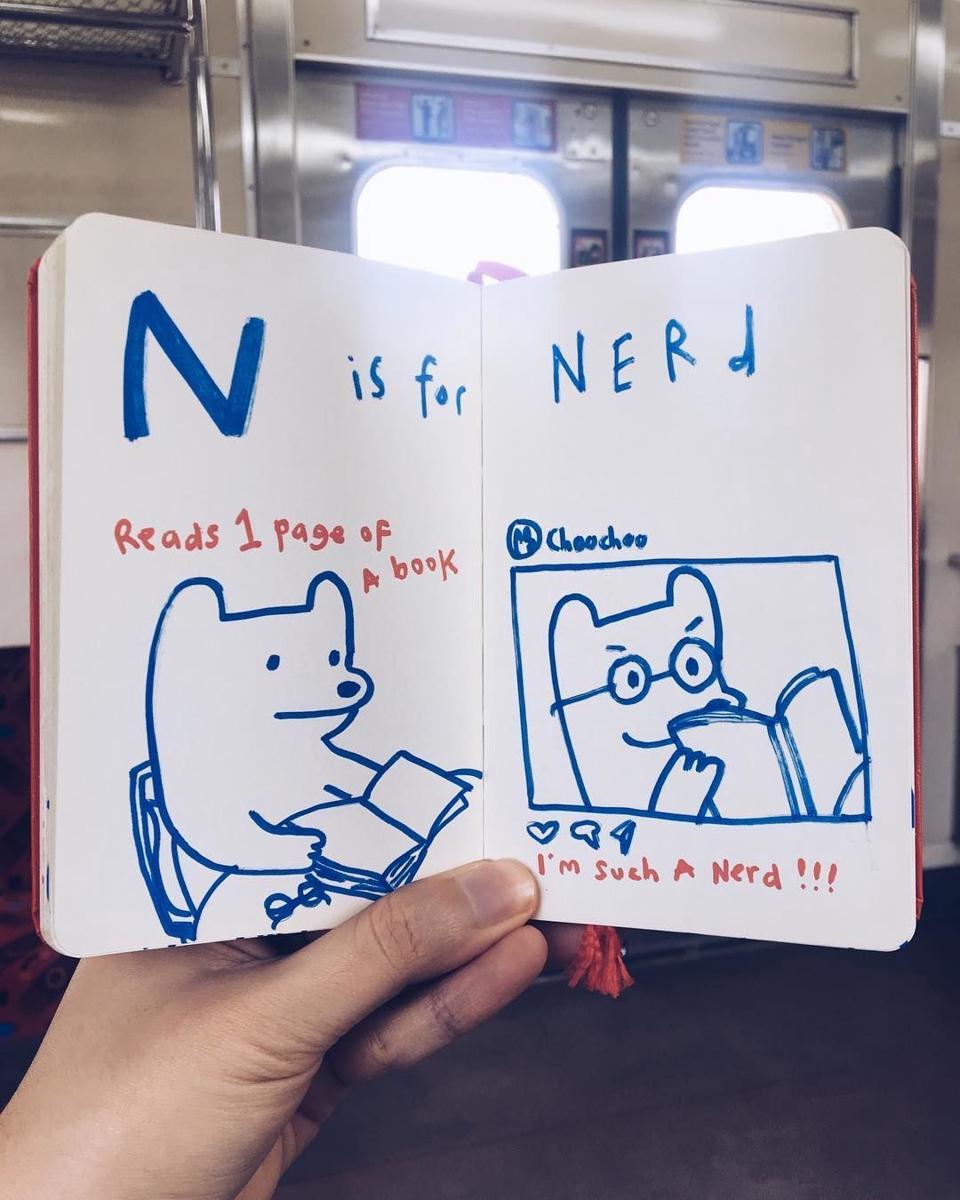 N is for NERd
Reads 1 page of
A book
Choochoo
I'm such A Nerd !!!